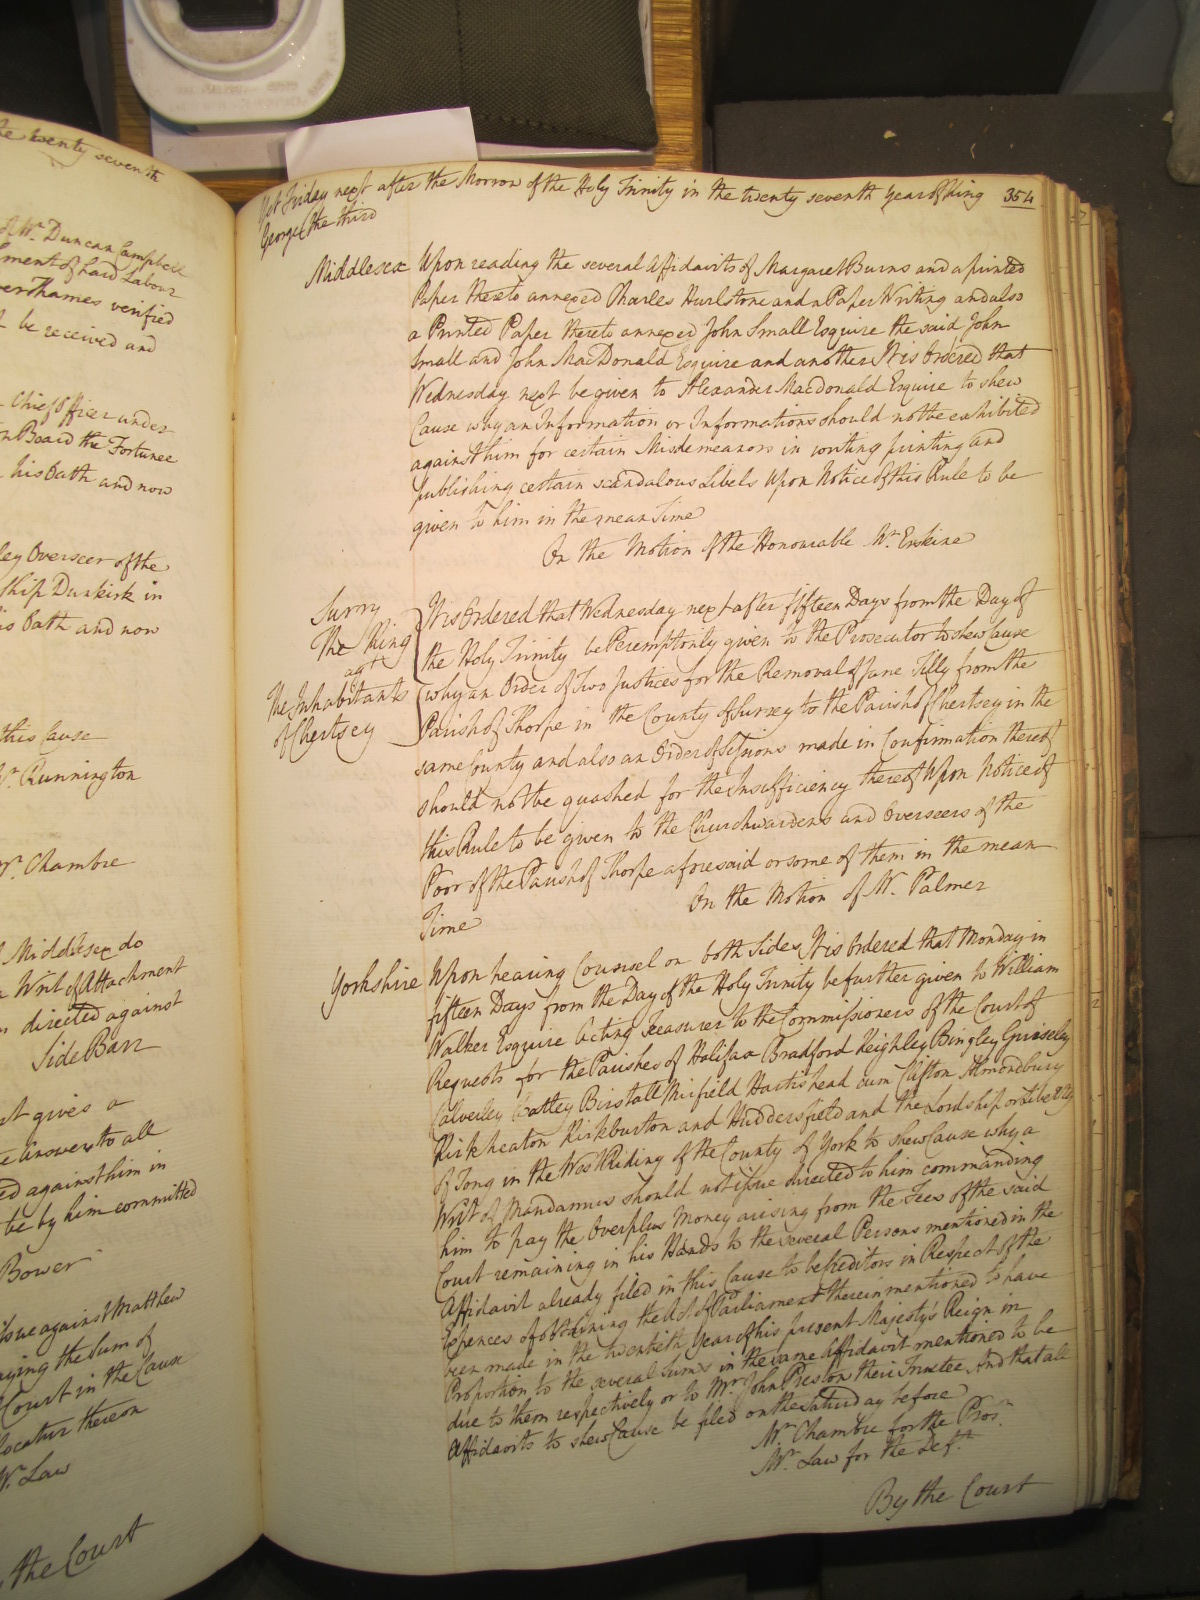 the twenty seventh
Mr. Duncan Campbell
ment of hard Labour
ver Thames verified
be received and
Chief Officer under
n Board the Fortunee
his Oath and now
ley Overseer of the
ship Dunkirk in
is Oath and now
this Cause
Mr. Runnington
Mr. Chambre
Middlesex do
Writ of Attachment
directed against
Side Barr
st gives a
e Answer to all
ed against him in
be by him committed
Bower
issue against Matthew
aying the Sum of
Court in the Cause
locatur thereon
Mr. Law
the Court
Yet Friday next after the Morrow of the Holy Trinity in the twenty seventh Year of King 354
George the third
Middlesex Upon reading the several Affidavits of Margaret Burns and a printed
Paper thereto annexed Charles Hurlstone and a Paper Writing and also
a Printed Paper thereto annexed John Small Esquire the said John
Small and John MacDonald Esquire and another It is Ordered that
Wednesday next be given to Alexander Macdonald Esquire to shew
Cause why an Information or Informations should not be exhibited
against him for certain Misdemeanors in writing printing and
publishing certain scandalous Libels Upon Notice of this Rule to be
given to him in the mean Time
On the Motion of the Honourable Mr. Erskine
Surry
The King
agt
The Inhabitants
of Chertsey
It is Ordered that Wednesday next after fifteen Days from the Day of
the Holy Trinity be Peremptorily given to the Prosecutor to shew Cause
why an Order of Two Justices for the Removal of Jane Tilly from the
Parish of Thorpe in the County of Surrey to the Parish of Chertsey in the
same County and also an Order of Sessions made in Confirmation thereof
should not be quashed for the Insufficiency thereof Upon Notice of
this Rule to be given to the Churchwardens and Overseers of the
Poor of the Parish of Thorpe aforesaid or some of them in the mean
Time
On the Motion of Mr. Palmer
Yorkshire Upon hearing Counsel on both Sides It is Ordered that Monday in
fifteen Days from the Day of the Holy Trinity be further given to William
Walker Esquire Acting Treasurer to the Commissioners of the Court of
Requests for the Parishes of Halifax Bradford Keighley Bingley Guiseley
Calverley Batley Birstall Mirfield Hartishead cum Clifton Almondbury
Kirkheaton Kirkburton and Huddersfield and the Lordship or Liberty
of Tong in the West Riding of the County of York to shew Cause why a
Writ of Mandamus should not issue directed to him commanding
him to pay the Overplus Money arising from the Fees of the said
Court remaining in his Hands to the several Persons mentioned in the
Affidavit already filed in this Cause to be Creditors in Respect of the
Expences of obtaining the Act of Parliament therein mentioned to have
been made in the twentieth Year of his present Majesty's Reign in
Proportion to the several Sums in the same Affidavit mentioned to be
due to them respectively or to Mr. John Preston their Trustee And that all
Affidavits to shew Cause be filed on the Saturday before
Mr. Chambre for the Pros.r
Mr. Law for the Def.t
By the Court